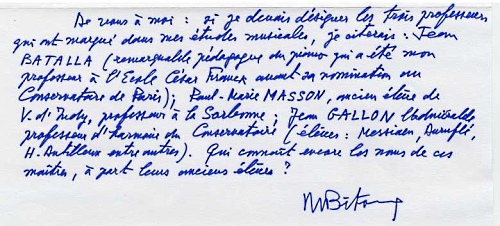 De vous à moi : si je devais désigner les trois professeurs
qui ont marqué dans mes études musicales, je citerais : Jean
BATALLA (remarquable pédagogue du piano qui a été mon
professeur à l'Ecole César Franck avant sa nomination au
Conservatoire de Paris) ; Paul-Marie MASSON, ancien élève de
V. d'Indy, professeur à la Sorbonne ; Jean GALLON l'admirable
professeur d'Harmonie du Conservatoire (élèves : Messiaen, Duruflé,
H. Dutilleux entre autres). Qui connaît encore les noms de ces
maîtres, à part leurs anciens élèves ?